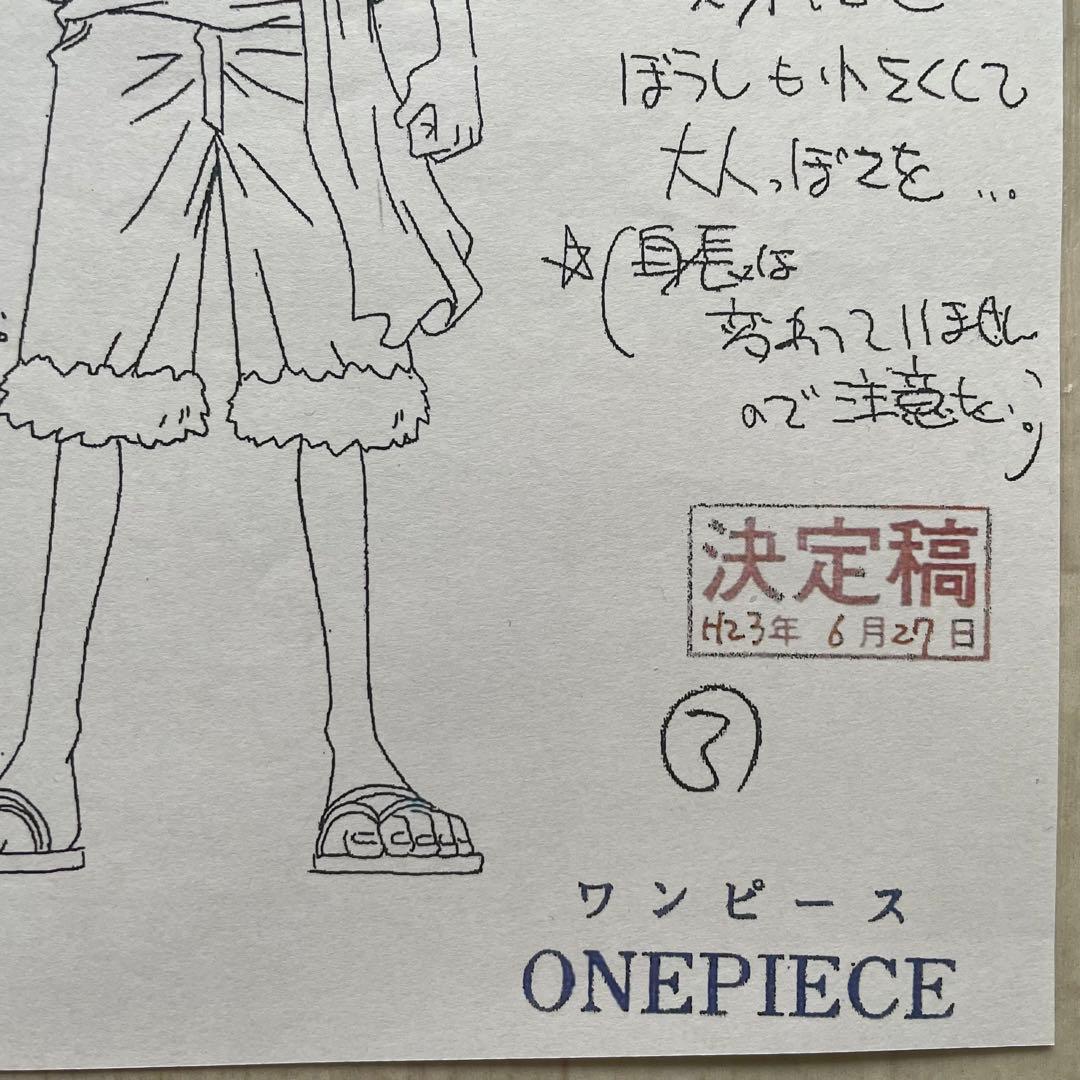 ぼうしも小さくして
大人っぽさを…
☆(身長は
変わっていません
ので注意を。)
決定稿
H23年 6月27日
ワンピース
ONEPIECE